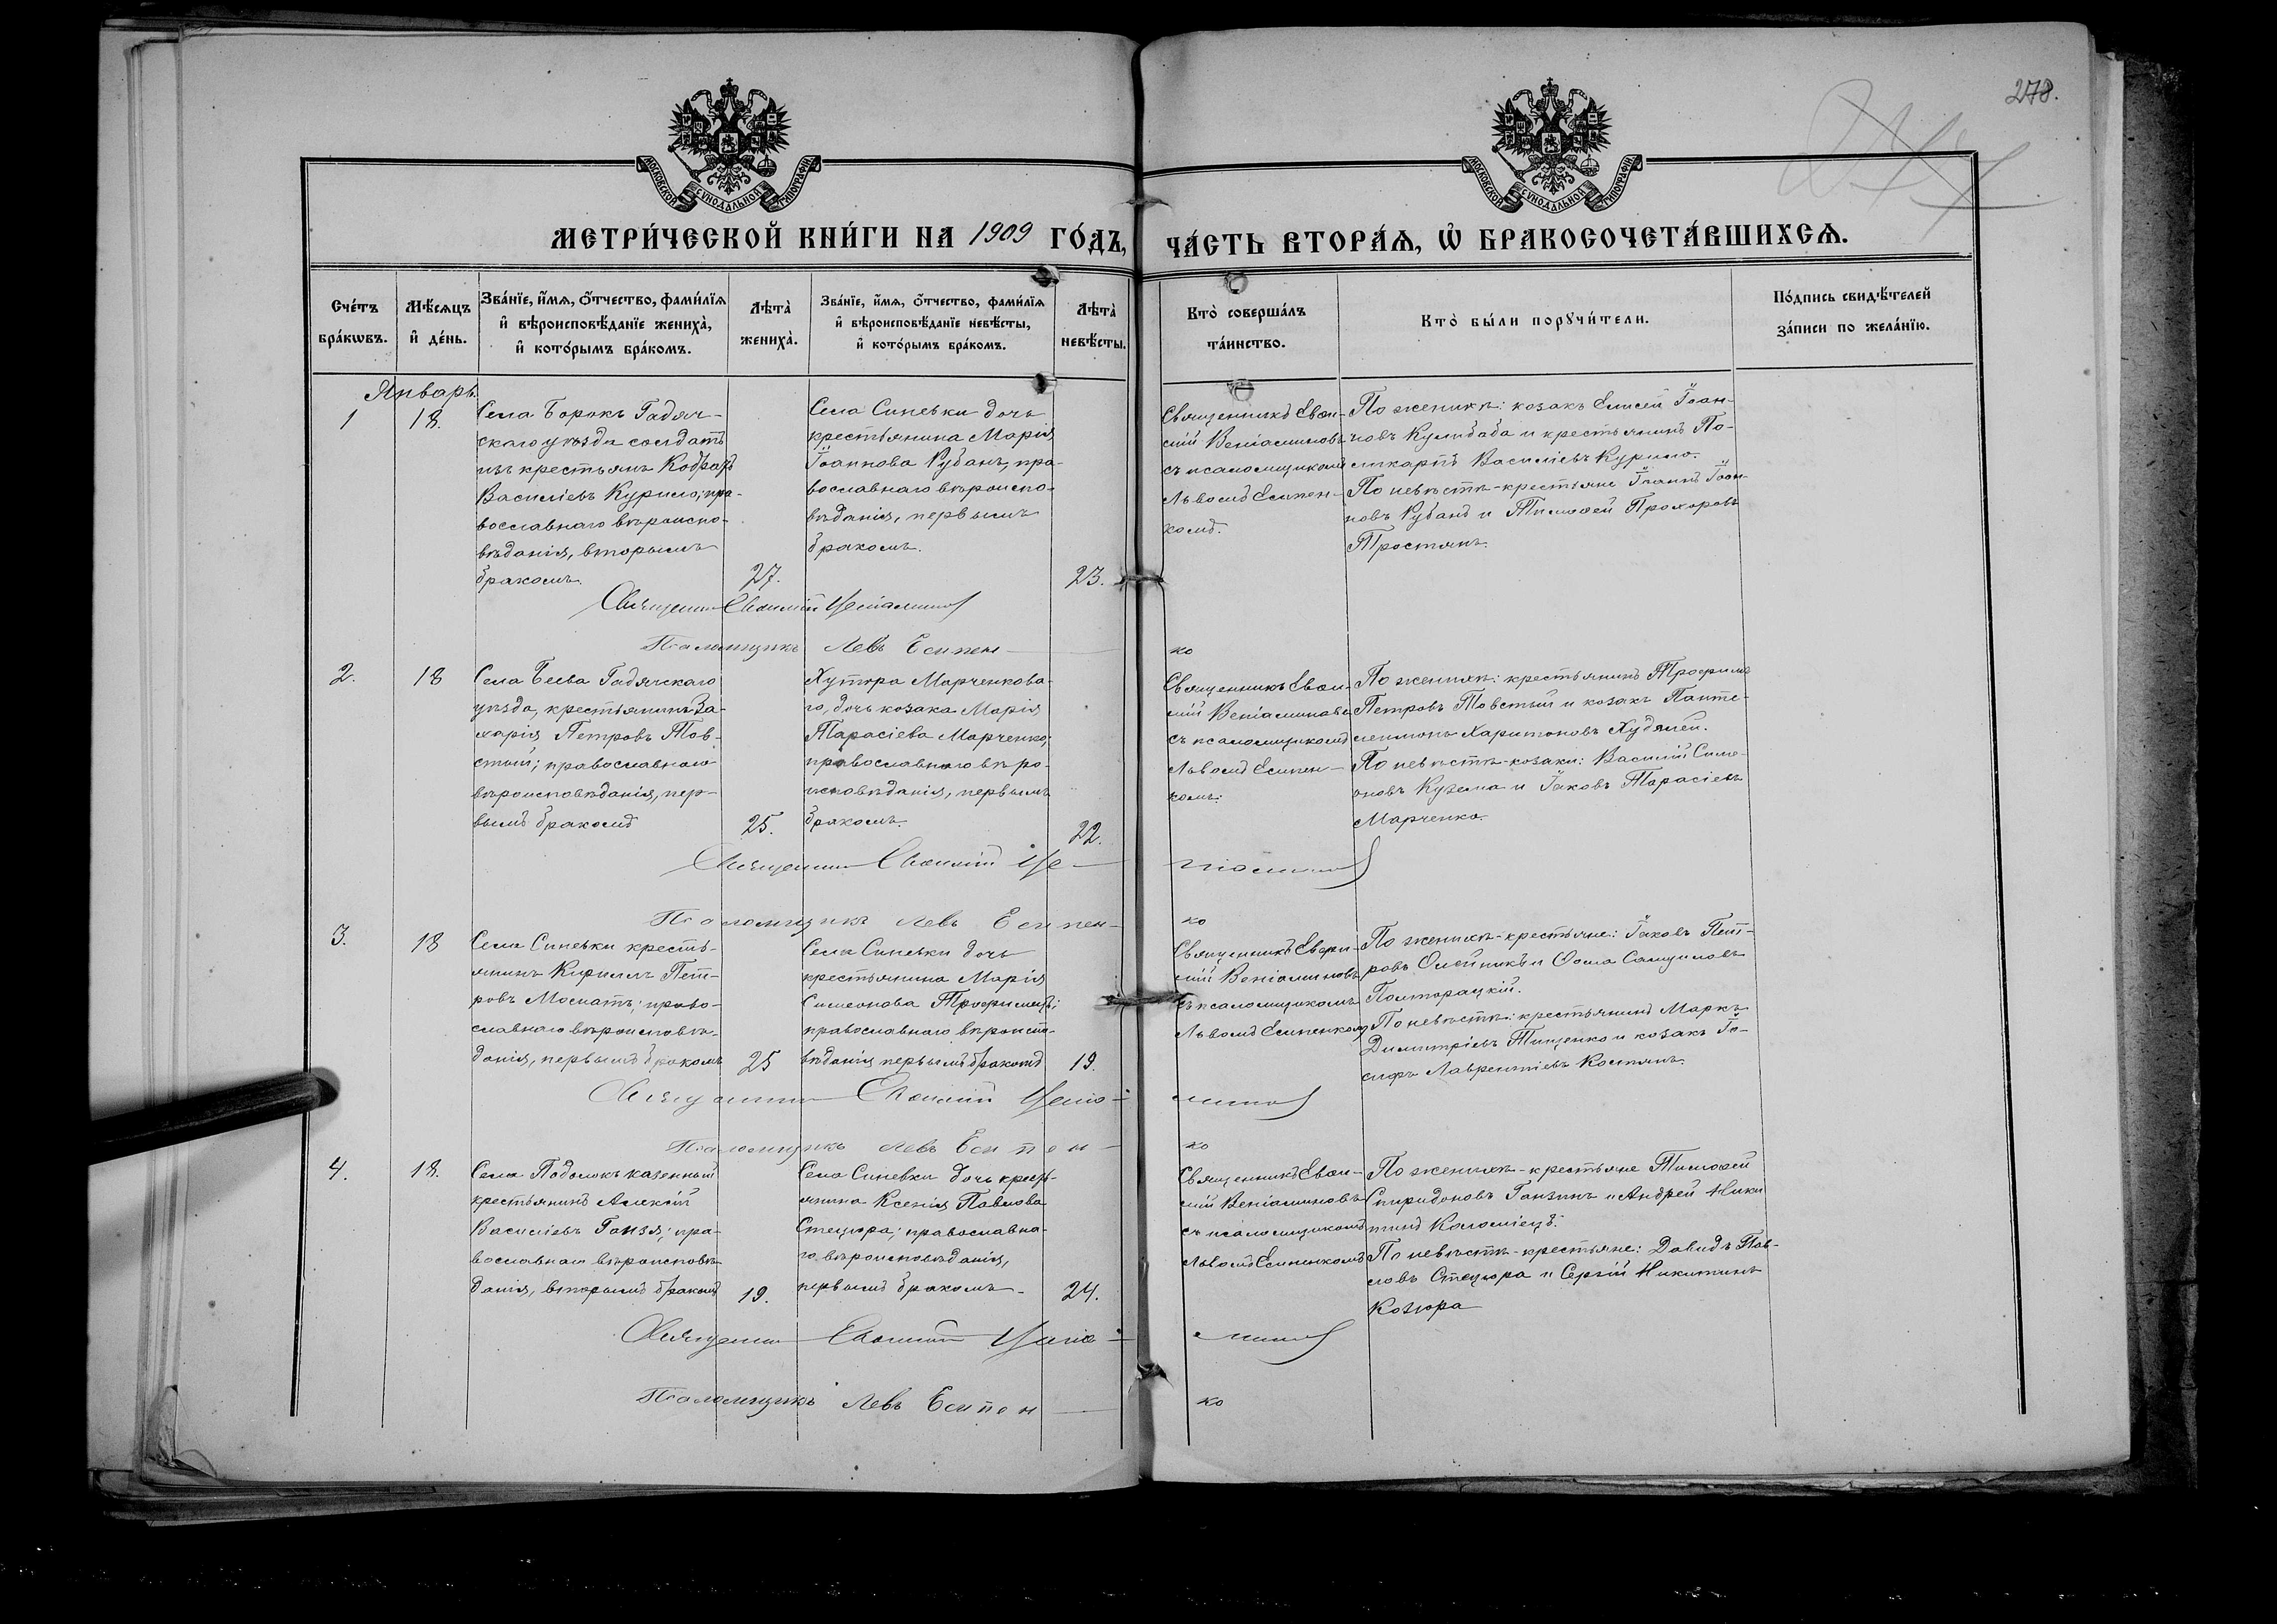 278.
МОСКОВСКОЙ СѴНОДАЛЬНОЙ ТИПОГРАФІИ
МОСКОВСКОЙ СѴНОДАЛЬНОЙ ТИПОГРАФІИ
МЕТРИ́ЧЕСКОЙ КНИ́ГИ НА 1909 ГО́ДЪ, ЧА́СТЬ ВТОРА́Ѧ, Ѡ҆ БРАКОСОЧЕТА́ВШИХСѦ.
Сче́тъ бра́кѡвъ.
Мѣ́сѧцъ и҆ де́нь.
Зва́нїе, и҆́мѧ, ѻ҆́тчество, фами́лїѧ
и҆ вѣроисповѣ́данїе жениха̀,
и҆ кото́рымъ бра́комъ.
Лѣта̀ жениха̀.
Зва́нїе, и҆́мѧ, ѻ҆́тчество, фами́лїѧ
и҆ вѣроисповѣ́данїе невѣ́сты,
и҆ кото́рымъ бра́комъ.
Лѣта̀ невѣ́сты.
Кто̀ соверша́лъ
та́инство.
Кто̀ бы́ли порꙋчи́тели.
По́дпись свидѣ́телей
за́писи по жела́нїю.
Январь.
1
18.
Села Борокъ Гадяч-
скаго уѣзда солдатъ
изъ крестьянъ Кодратъ
Василіевъ Курило; пра-
вославнаго вѣроиспо-
вѣданія, вторымъ
бракомъ.
27.
Села Синевки дочь
крестьянина Марія
Іоаннова Рубанъ, пра-
вославнаго вѣроиспо-
вѣданія, первымъ
бракомъ.
23.
Священникъ Евѳи-
мій Веніаминовъ
съ псаломщикомъ
Львомъ Есипен-
комъ.
По женихѣ: козакъ Елисей Іоан-
новъ Кулибаба и крестьянинъ По-
ликарпъ Василіевъ Курило.
По невѣстѣ-крестьяне Іоаннъ Іоан-
новъ Рубанъ и Тимоѳей Прохоровъ
Тростянъ.
Священникъ Евѳимій Веніаминовъ
Псаломщикъ Левъ Есипен-ко
2.
18
Села Беева Гадячскаго
уѣзда, крестьянинъ За-
харія Петровъ Тов-
стый; православнаго
вѣроисповѣданія, пер-
вымъ бракомъ
25.
Хутора Марченкова-
го, дочь козака Марія
Тарасіева Марченко;
православнаго вѣро-
исповѣданія, первымъ
бракомъ.
22.
Священникъ Евѳи-
мій Веніаминовъ
съ псаломщикомъ
Львомъ Есипен-
комъ.
По женихѣ: крестьянинъ Трофимъ
Петровъ Товстый и козакъ Панте-
леимонъ Харитоновъ Худолей.
По невѣстѣ-козаки: Василій Симе-
оновъ Кузема и Іаковъ Тарасіевъ
Марченко.
Священникъ Евѳимій Веніаминовъ
Псаломщикъ Левъ Есипен-ко
3.
18
Села Синевки кресть-
янинъ Кириллъ Пет-
ровъ Москатъ; право-
славнаго вѣроисповѣ-
данія, первымъ бракомъ
25
Села Синевки дочь
крестьянина Марія
Симеонова Трофимецъ;
православнаго вѣроиспо-
вѣданія первымъ бракомъ
19.
Священникъ Евѳи-
мій Веніаминовъ
съ псаломщикомъ
Львомъ Есипенкомъ
По женихѣ-крестьяне: Іаковъ Пет-
ровъ Олейникъ и Ѳома Самуиловъ
Полторацкій.
По невѣстѣ: крестьянинъ Маркъ
Димитріевъ Тищенко и козакъ Іо-
сифъ Лаврентіевъ Костянъ.
Священникъ Евѳимій Веніаминовъ
Псаломщикъ Левъ Есипен-ко
4.
18.
Села Подолокъ казенный
крестьянинъ Алексій
Василіевъ Ганзя; пра-
вославнаго вѣроисповѣ-
данія, вторымъ бракомъ
19.
Села Синевки дочь кресть-
янина Ксенія Павлова
Стецюра; православна-
го вѣроисповѣданія,
первымъ бракомъ
24.
Священникъ Евѳи-
мій Веніаминовъ
съ псаломщикомъ
Львомъ Есипенкомъ
По женихѣ-крестьяне Тимоѳей
Спиридоновъ Ганзинъ и Андрей Ники
тинъ Коломіецъ.
По невѣстѣ-крестьяне: Давидъ Пав-
ловъ Стецюра и Сергій Никитинъ
Козюра
Священникъ Евѳимій Веніаминовъ
Псаломщикъ Левъ Есипен-ко